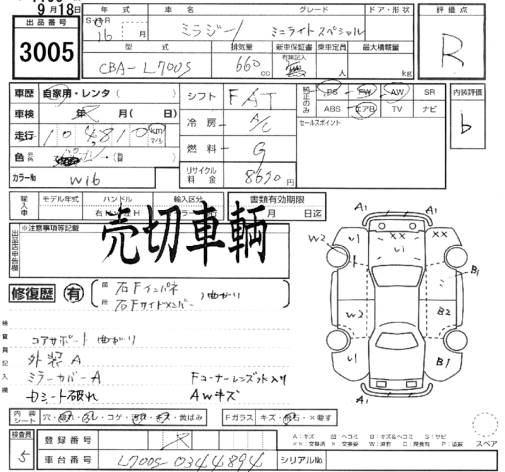 9月18日
出品番号 3005
年式 車名 グレード ドア・形状
16 月 ミラジーノ ミニライトスペシャル
型式 排気量 新車保証書 乗車定員 最大積載量
CBA-L700S 660 cc 有 人 kg
評価点 R
車歴 自家用・レンタ シフト FAT
PS PW AW SR
ABS エアB TV ナビ
内装評価 b
車検 年 月(日) 冷房 A/C
セールスポイント
走行 104,810 km
色 燃料 G
カラーNo W16 リサイクル料金 8690 円
輸入車 モデル年式 ハンドル 輸入区分 書類有効期限
右 H 月 日迄
※注意事項等記載
売切車輌
修復歴 有
右Fインパネ
右Fサイドメンバー 曲がり
検査員記入欄
コアサポート 曲がり
外装A
ミラーカバーA Fコーナーレンズ水入り
Dシート破れ AWキズ
内装シート ・コゲ・ ・黄ばみ Fガラス キズ・ 石・×要す
検査員 5
登録番号
車台番号 L700S-0344894 シリアルNo
A1 A1
W2 U1 XX U1
B1
W2 B2
U1 B1
A1
スペア